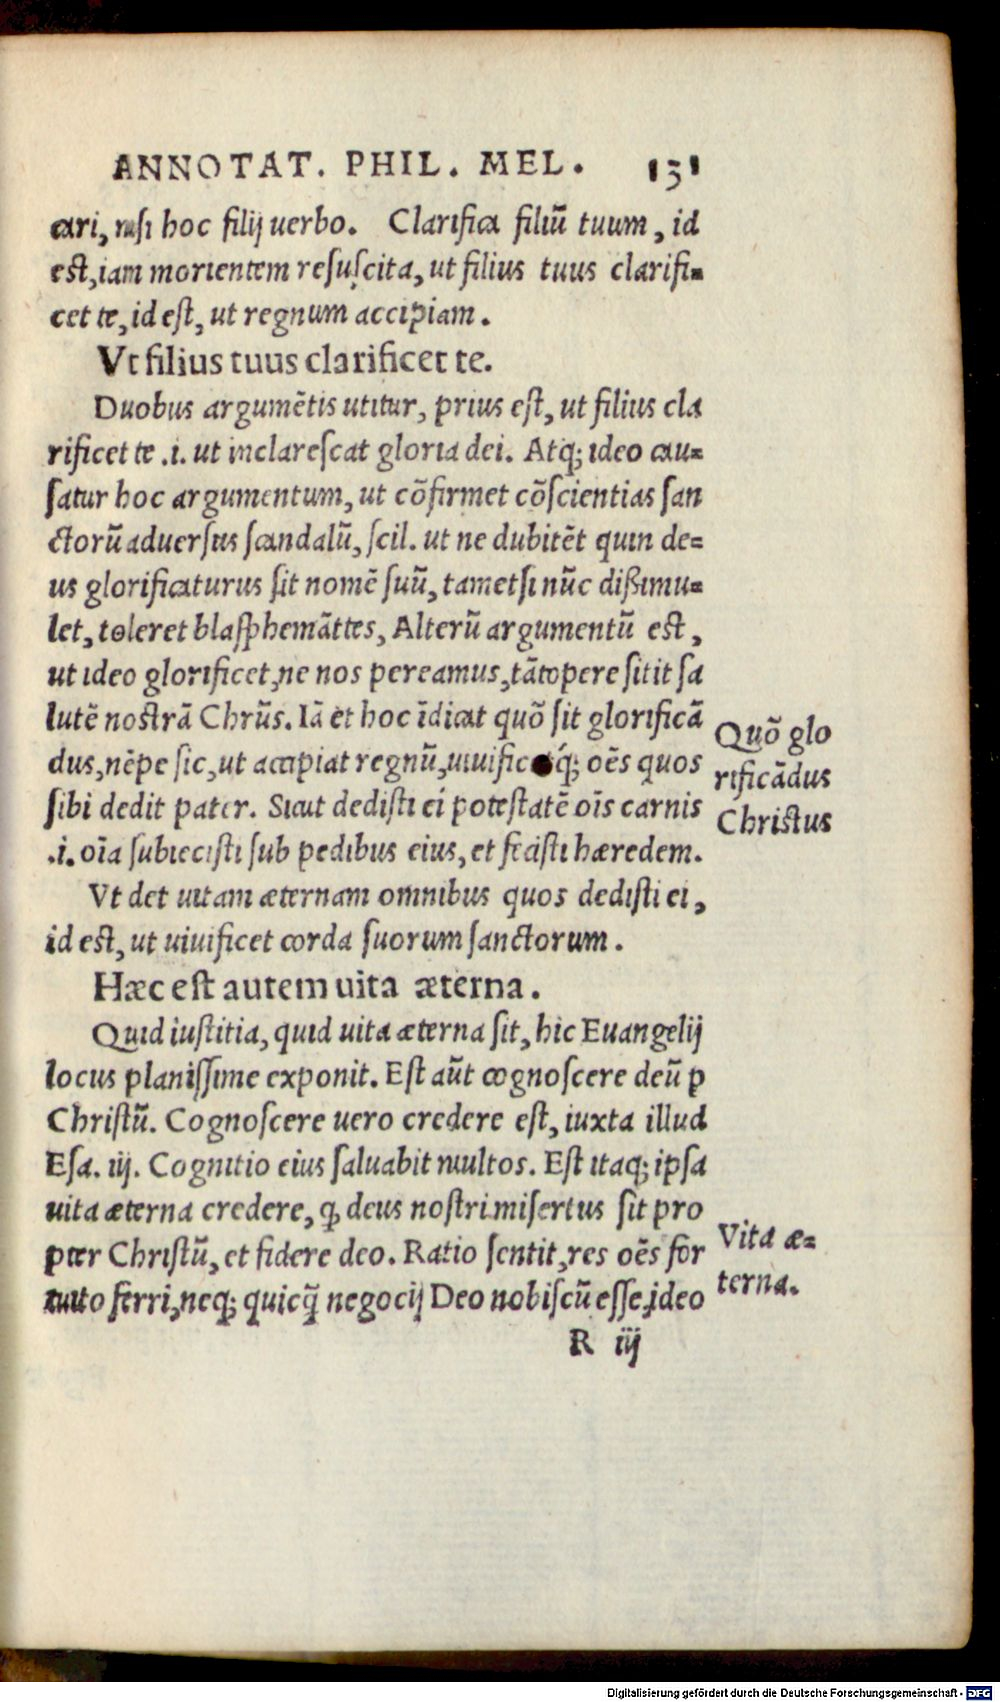 ANNOTAT. PHIL. MEL. 131
cari, nisi hoc filij uerbo. Clarifica filiũ tuum, id
est, iam morientem resuscita, ut filius tuus clarifi=
cet te, id est, ut regnum accipiam.
Vt filius tuus clarificet te.
Duobus argumẽtis utitur, prius est, ut filius cla
rificet te .i. ut inclarescat gloria dei. Atq; ideo cau=
satur hoc argumentum, ut cõfirmet cõscientias san
ctorũ aduersus scandalũ, scil. ut ne dubitẽt quin de=
us glorificaturus sit nomẽ suũ, tametsi nũc dißimu=
let, toleret blasphemãttes, Alterũ argumentũ est,
ut ideo glorificet, ne nos pereamus, tãtopere sitit sa
lutẽ nostrã Chrũs. Iã et hoc ĩdicat quõ sit glorificã
dus, nẽpe sic, ut accipiat regnũ, uiuificetq́; oẽs quos
sibi dedit pater. Sicut dedisti ei potestatẽ oĩs carnis
.i. oĩa subiecisti sub pedibus eius, et fecisti hæredem.
Vt det uitam æternam omnibus quos dedisti ei,
id est, ut uiuificet corda suorum sanctorum.
Hæc est autem uita æterna.
Quid iustitia, quid uita æterna sit, hic Euangelij
locus planissime exponit. Est aũt cognoscere deũ ꝑ
Christũ. Cognoscere uero credere est, iuxta illud
Esa. iij. Cognitio eius saluabit multos. Est itaq; ipsa
uita æterna credere, ꝙ deus nostri misertus sit pro
pter Christũ, et fidere deo. Ratio sentit, res oẽs for
tuito ferri, neq; quicq̃ negocij Deo nobiscũ esse, ideo
R iij
Quõ glo
rificãdus
Christus
Vita æ=
terna.
Digitalisierung gefördert durch die Deutsche Forschungsgemeinschaft - DFG